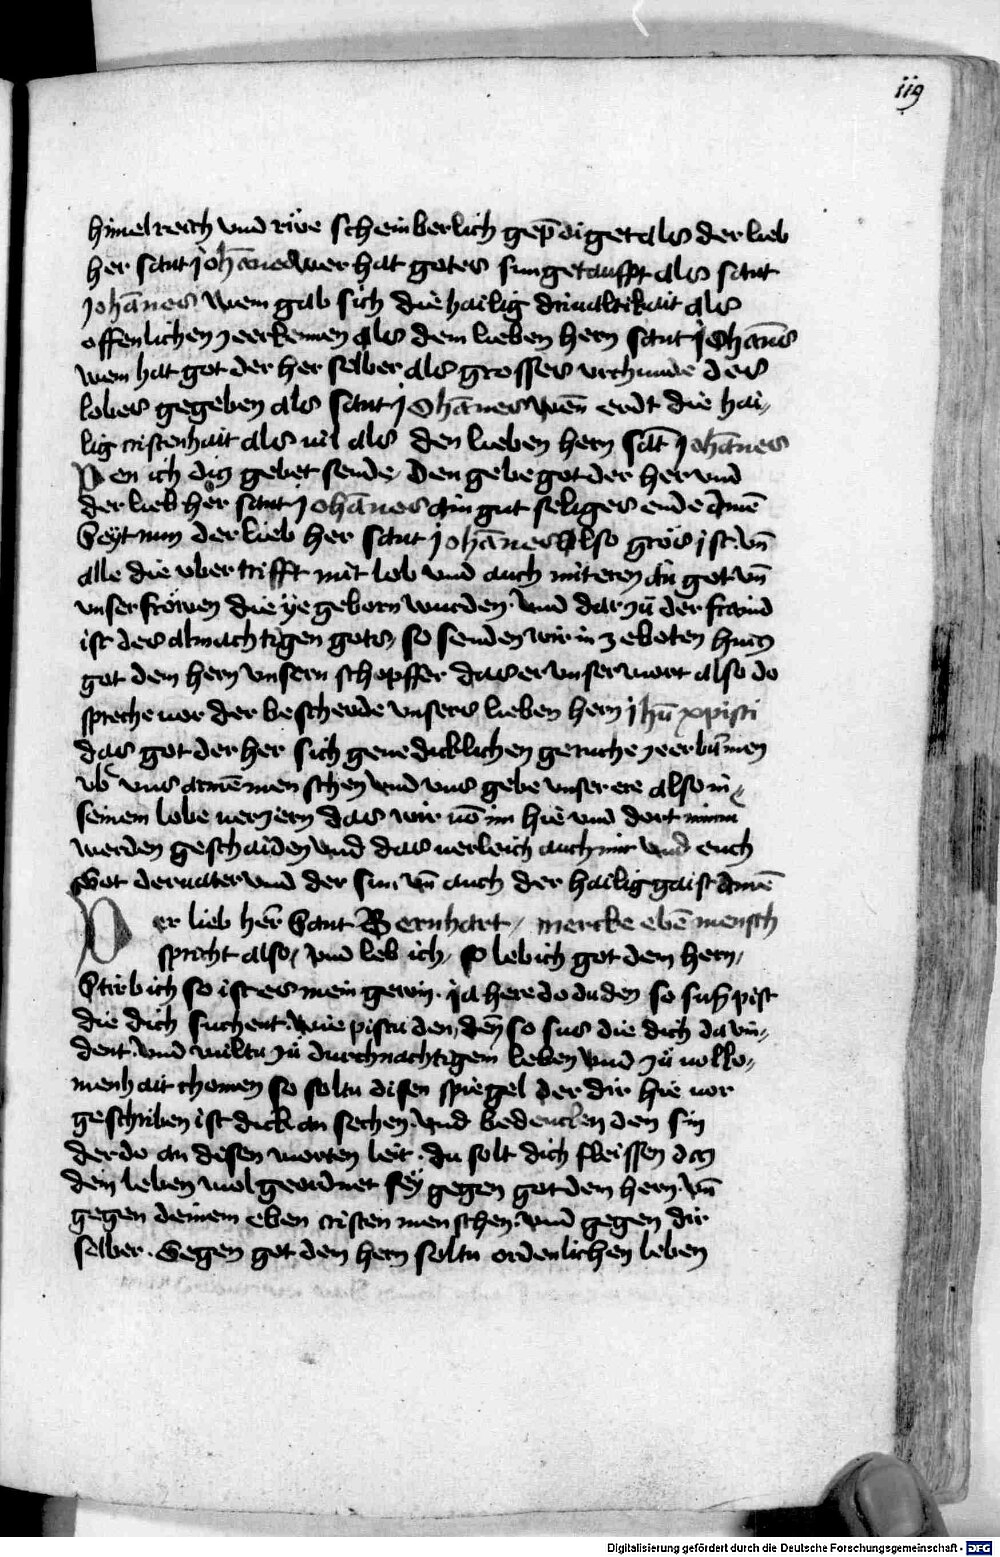 119
himelreich vnd rwe scheinberlich gep̄diget als der lieb
her sant johānes wer hat gotes sun getaufft als sant
johānes wem gab sich die hailig driualtikait als
offenlichen zeerkennen als dem lieben hern sant johānes
wem hat got der her selber als grosses vrchunde des
lobes gegeben als sant johānes wen̄ erāt die hai„
lig cristenhait als uil als den lieben hern sāt johānes
Den ich diß gebet sende, den gebe got der her vnd
der lieb her sant johānes ain gut seliges ende amē
Seyt nun der lieb her sant johānes also groͤs ist vn̄
alle die vbertrifft mit lob vnd auch mit eren an got vn̄
vnser frowen die ye geborn wurden. vnd dar zu der fraind
ist des almachtigen gots, so senden wir in ze boten hincz
got dem hern vnsern schopffer das er vnser wort also do
spreche vor der bescherde vnsers lieben hern jhū xp̄isti
das got der her sich genedicklichen geruche zeerbarmen
vb̄ vns armē menschen vnd vns gebe vnser ere also in„
seinem lobe uerzern das wir uō im hie vnd dort nimm
werden geschaiden vnd das uerleich auch mir vnd euch
Got der uater vnd der sun vn̄ auch der hailig gaist Amē
Der lieb her̄ Sant Bernhart, mercke ebē mensch
spricht also, vnd leb ich, so leb ich got dem hern,
Stirb ich so ist es mein gewin. ja here do du den so suß pist
die dich suchent. wie pistu den, den so sus die dich da vin„
dent. vnd wiltu zu durchnachtigem leben vnd zu uolko„
menhait chomen so soltu disen spiegel der dir hie vor
geschriben ist dick an sechen. vnd bedencken den sin
der do an disen worten leit. du solt dich fleissen daz
dein leben wol geordnet sey gegen got dem hern. vn̄
gegen deinem eben cristen menschen. vnd gegen dir
selber. Gegen got dem hern soltu ordenlichen leben
Digitalisierung gefördert durch die Deutsche Forschungsgemeinschaft - DFG